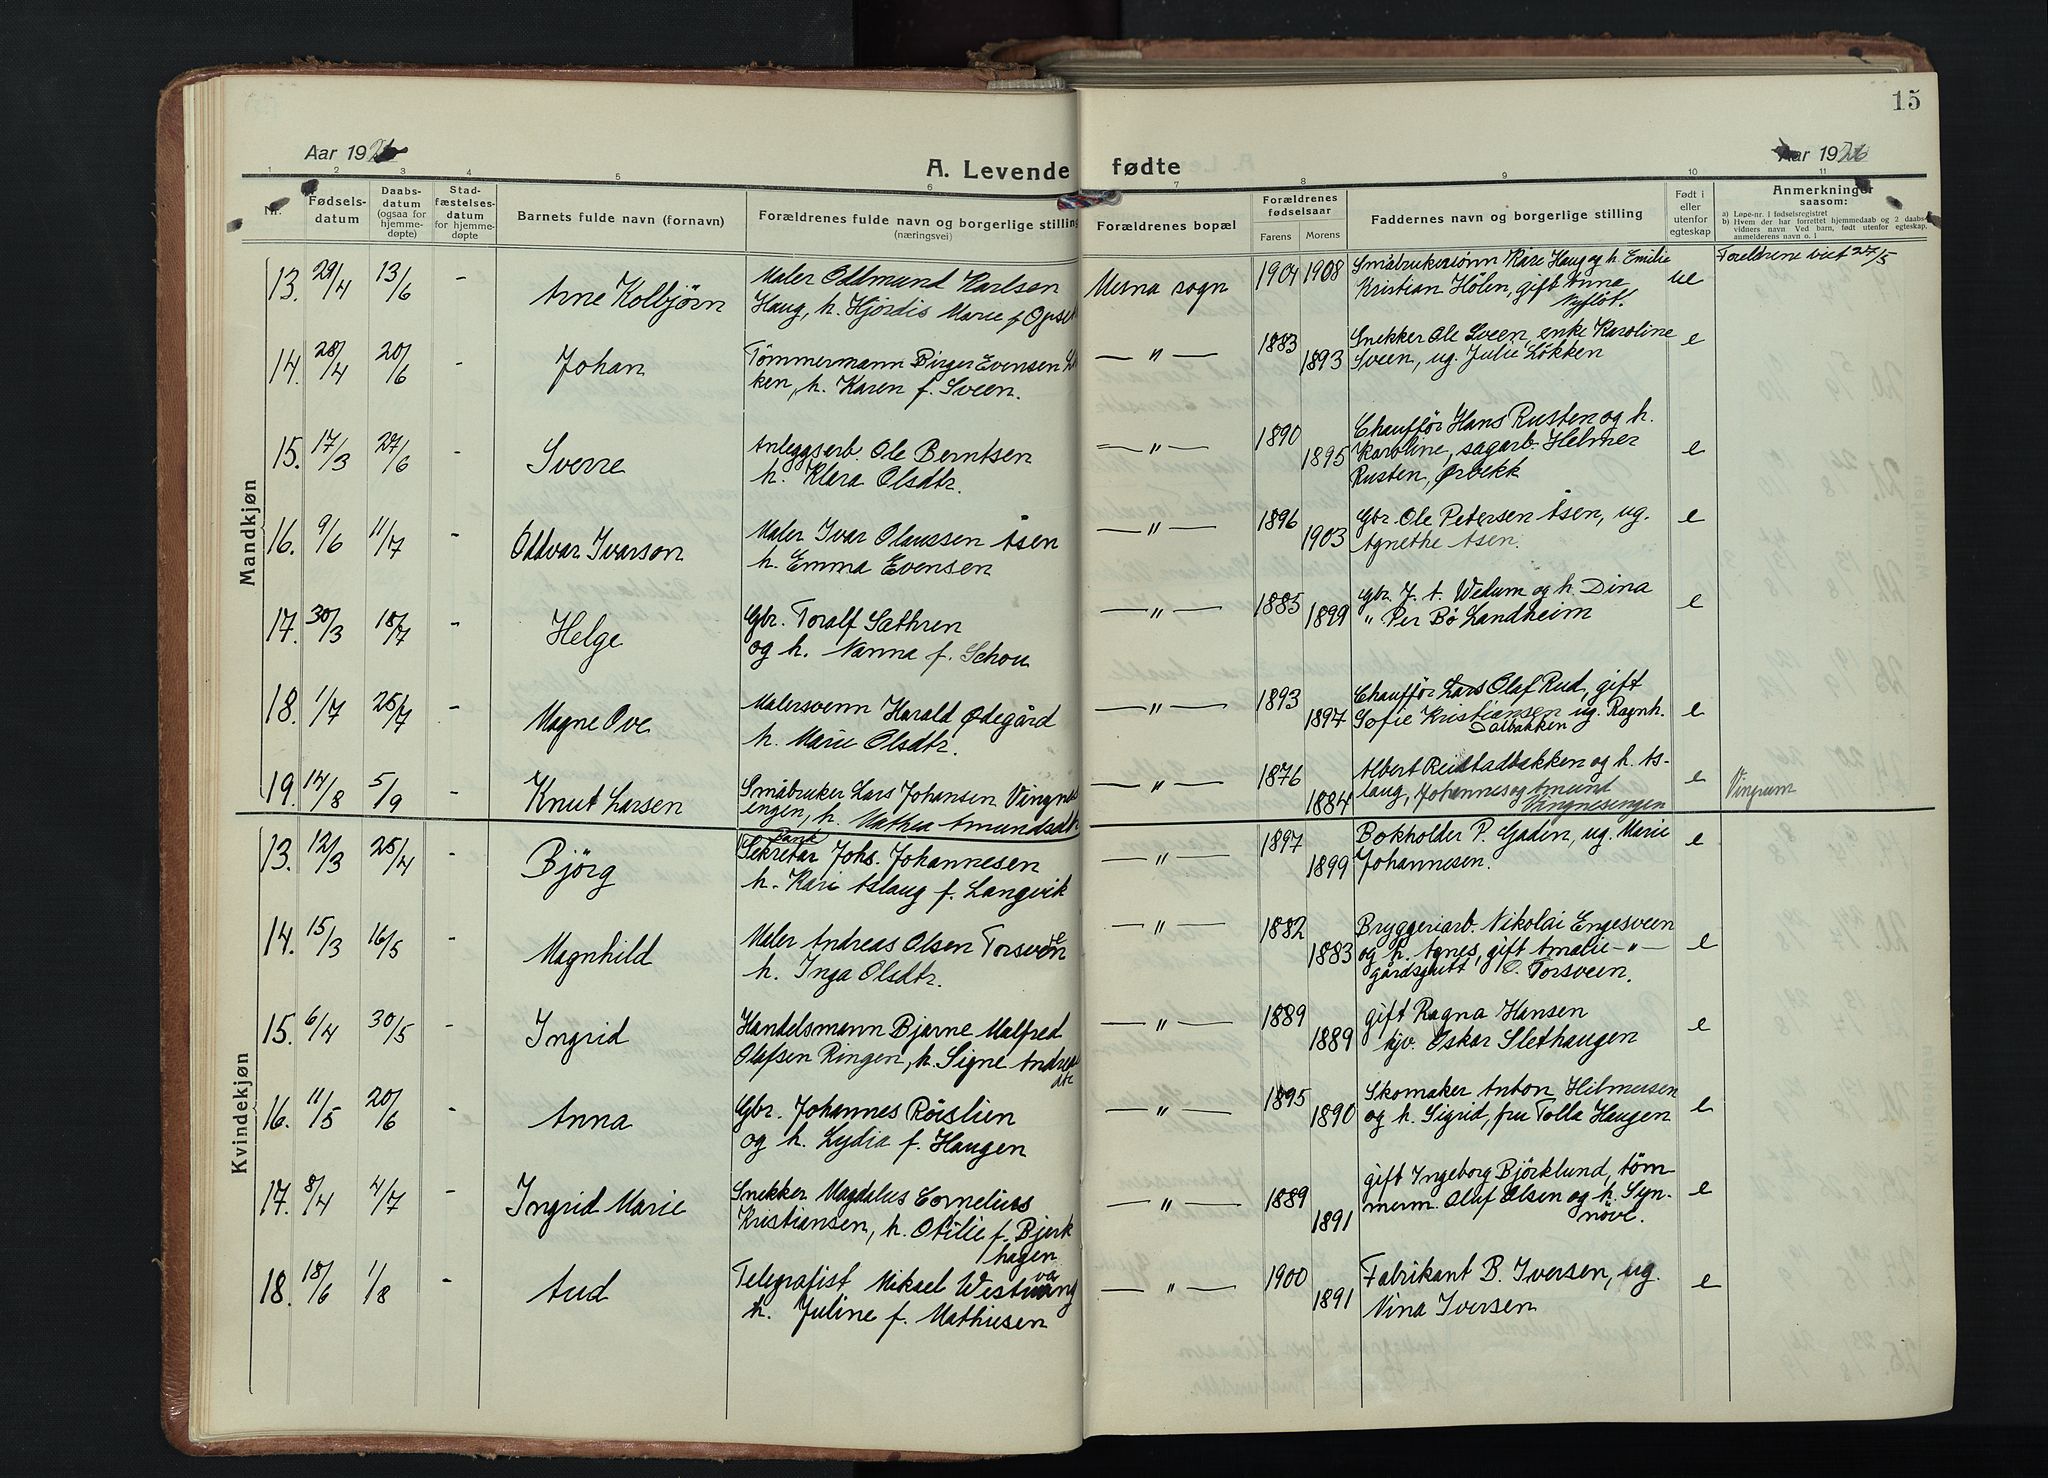 15
Aar 1926
A. Levende fødte
Aar 1926
1 2 3 4 5 6 7 8 9 10 11
Nr.
Fødsels-
datum
Daabs-
datum
(ogsaa for
hjemme-
døpte)
Stad-
fæstelses-
datum
for hjemme-
døpte
Barnets fulde navn (fornavn)
Forældrenes fulde navn og borgerlige stilling
(næringsvei)
Forældrenes bopæl
Forældrenes
fødselsaar
Farens Morens
Faddernes navn og borgerlige stilling
Født i
eller
utenfor
egteskap
Anmerkninger
saasom:
a) Løpe-nr. i fødselsregistret
b) Hvem der har forrettet hjemmedaab og 2 daabs-
vidners navn Ved barn, født utenfor egteskap,
anmelderens navn o. l
Mandkjøn
13. 29/4 13/6 - Arne Kolbjørn
Maler Oddmund Karlsen
Haug, h. Hjordis Marie f. Opset
Mesna sogn 1904 1908
Småbrukersønn Kåre Haug og h. Emilie
Kristian Hølen, gift Anna
Nyfløt.
ue
Foreldrene viet 27/5
14. 28/4 20/6 - Johan
Tømmermann Birger Evensen
ken, h. Karen f. Sveen.
— " — 1883 1893
Snekker Ole Sveen, enke Karoline
Sveen, ug. Julie Løkken
e
15. 17/3 27/6 - Sverre
Anleggsarb. Ole Berntsen
h. Klara Olsdtr.
— " — 1890 1895
Chauffør Hans Rusten og h.
Karoline, sagarb. Helmer
Rusten, Ørbekk
e
16. 9/6 11/7 - Oddvar Ivarson
Maler Ivar Olaussen Åsen
h. Emma Evensen
— " — 1896 1903
Gbr. Ole Petersen Åsen, ug.
Agnethe Åsen.
e
17. 30/3 18/7 - Helge
Gbr. Toralf Sathren
og h. Nanna f. Schou
— " — 1885 1899
Gbr. J. A. Wedum og h. Dina
" Per Bø Landheim
e
18. 1/7 25/7 - Magne Ove
Malersvenn Harald Ødegård
h. Marie Olsdtr.
— " — 1893 1897
Chauffør Lars Olaf Rud, gift
Sofie Kristiansen ug. Ragnh.
Dalbakken
e
19. 14/8 5/9 - Knut Larsen
Småbruker Lars Johansen Vingnes
engen, h. Mathea Amundsdtr
— " — 1876 1884
Albert Reistadbakken og h. As-
laug, Johannes og Amund
Vingnesengen
e
Vingrum
Kvindekjøn
13. 12/3 25/4 - Bjørg
Bank
Sekretær Johs. Johannesen
h. Kari Aslaug f. Langvik
— " — 1897 1899
Bokholder P. Gaden, ug. Marie
Johannesen.
e
14. 15/3 16/5 - Magnhild
Maler Andreas Olsen Torsveen
h. Inga Olsdtr.
— " — 1882 1883
Bryggeriarb. Nikolai Engesveen
og h. Agnes, gift Amalie — " —
gårdsgutt O. Torsveen.
e
15. 6/4 30/5 - Ingrid
Handelsmann Bjarne Malfred
Olafsen Ringen, h. Signe Andreas
dtr
— " — 1889 1889
gift Ragna Hansen
kjv. Oskar Slethaugen
e
16. 11/5 20/6 - Anna
Gbr. Johannes Røislien
og h. Lydia f. Haugen
— " — 1895 1890
Skomaker Anton Hilmersen
og h. Sigrid, fru Tolla Haugen
e
17. 8/4 4/7 - Ingrid Marie
Snekker Magdalus Cornelius
Kristiansen, h. Otilie f. Bjerk
hagen
— " — 1889 1891
gift Ingeborg Björklund, tøm
merm. Oluf Olsen og h. Syn-
növe.
e
18. 18/6 1/8 - Aud
Telegrafist Mikael Westvang
h. Juline f. Mathiesen
— " — 1900 1891
Fabrikant B. Iversen, ug.
Nina Iversen
e